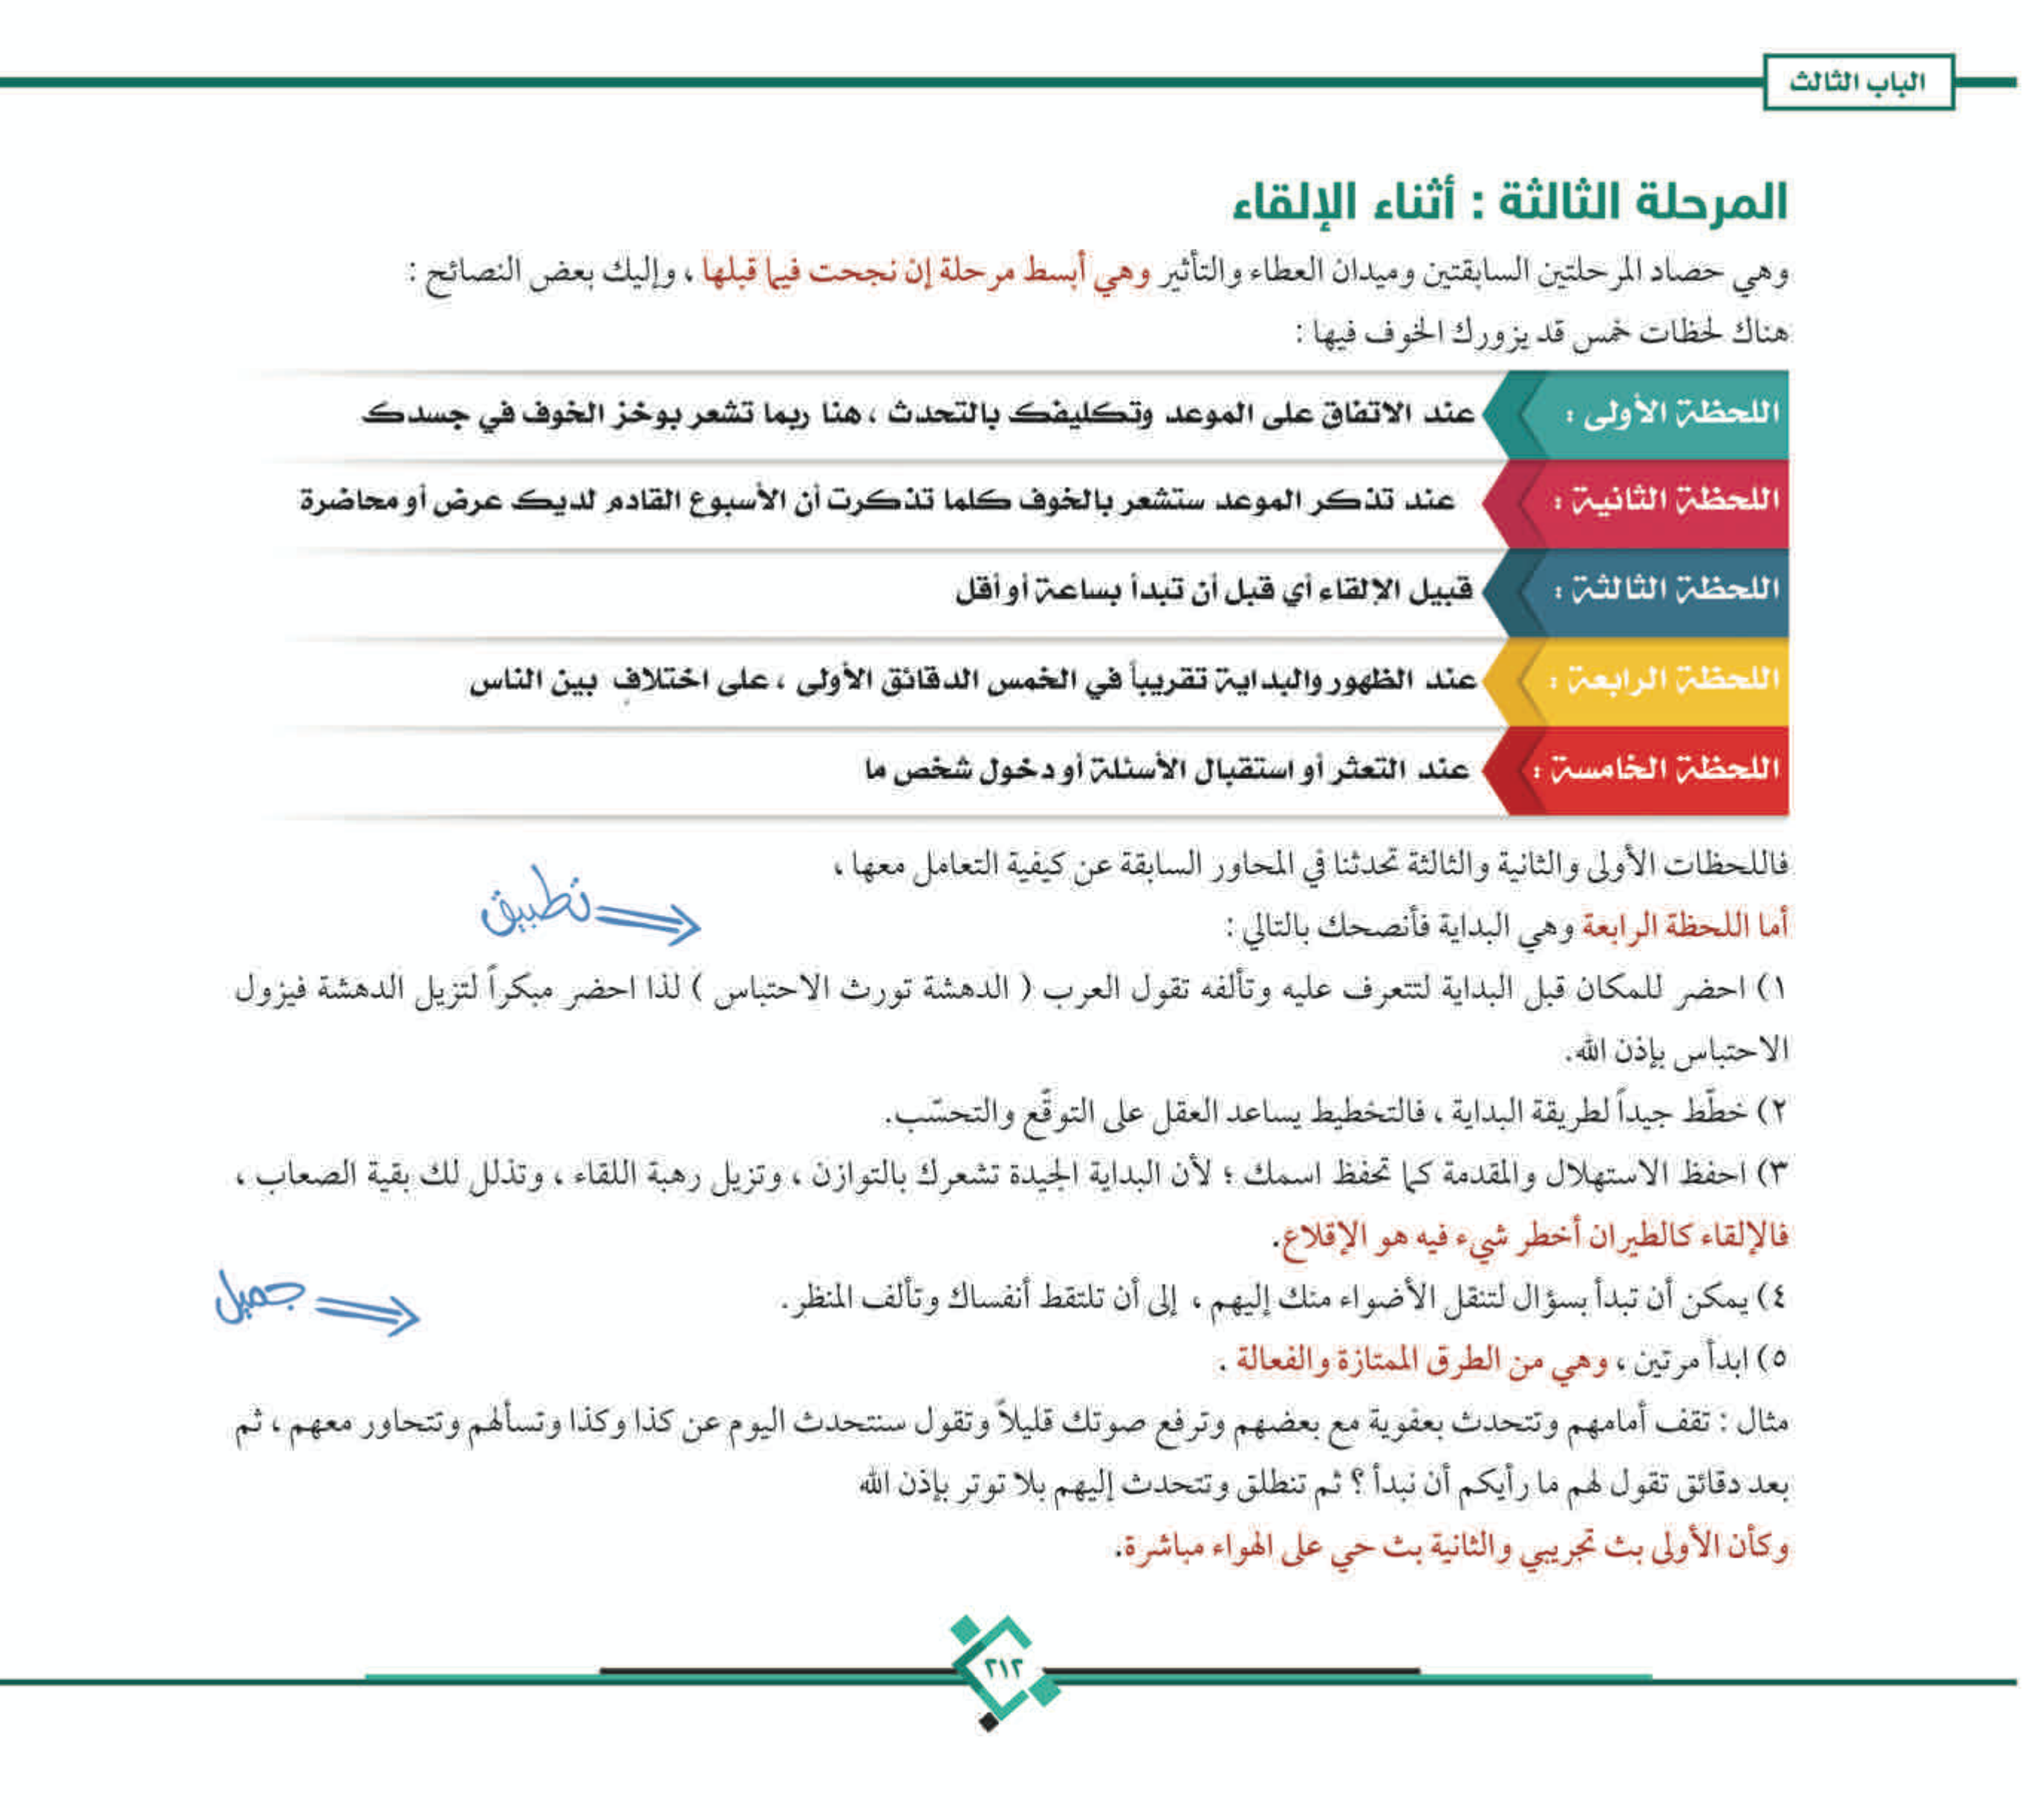 الباب الثالث
المرحلة الثالثة : أثناء الإلقاء
وهي حصاد المرحلتين السابقتين وميدان العطاء والتأثير وهي أبسط مرحلة إن نجحت فيما قبلها ، وإليك بعض النصائح :
هناك لحظات خمس قد يزورك الخوف فيها :
اللحظة الأولى : عند الاتفاق على الموعد وتكليفك بالتحدث ، هنا ربما تشعر بوخز الخوف في جسدك
اللحظة الثانية : عند تذكر الموعد ستشعر بالخوف كلما تذكرت أن الأسبوع القادم لديك عرض أو محاضرة
اللحظة الثالثة : قبيل الإلقاء أي قبل أن تبدأ بساعة أو أقل
اللحظة الرابعة : عند الظهور والبداية تقريباً في الخمس الدقائق الأولى ، على اختلافٍ بين الناس
اللحظة الخامسة : عند التعثر أو استقبال الأسئلة أو دخول شخص ما
فاللحظات الأولى والثانية والثالثة تحدثنا في المحاور السابقة عن كيفية التعامل معها ،
أما اللحظة الرابعة وهي البداية فأنصحك بالتالي :
تطبيق
١) احضر للمكان قبل البداية لتتعرف عليه وتألفه تقول العرب ( الدهشة تورث الاحتباس ) لذا احضر مبكراً لتزيل الدهشة فيزول
الاحتباس بإذن الله.
٢) خطّط جيداً لطريقة البداية ، فالتخطيط يساعد العقل على التوقّع والتحسّب.
٣) احفظ الاستهلال والمقدمة كما تحفظ اسمك ؛ لأن البداية الجيدة تشعرك بالتوازن ، وتزيل رهبة اللقاء ، وتذلل لك بقية الصعاب ،
فالإلقاء كالطيران أخطر شيء فيه هو الإقلاع.
٤) يمكن أن تبدأ بسؤال لتنقل الأضواء منك إليهم ، إلى أن تلتقط أنفساك وتألف المنظر.
جميل
٥) ابدأ مرتين ، وهي من الطرق الممتازة والفعالة .
مثال : تقف أمامهم وتتحدث بعفوية مع بعضهم وترفع صوتك قليلاً وتقول سنتحدث اليوم عن كذا وكذا وتسألهم وتتحاور معهم ، ثم
بعد دقائق تقول لهم ما رأيكم أن نبدأ ؟ ثم تنطلق وتتحدث إليهم بلا توتر بإذن الله
وكأن الأولى بث تجريبي والثانية بث حي على الهواء مباشرة.
٢١٢